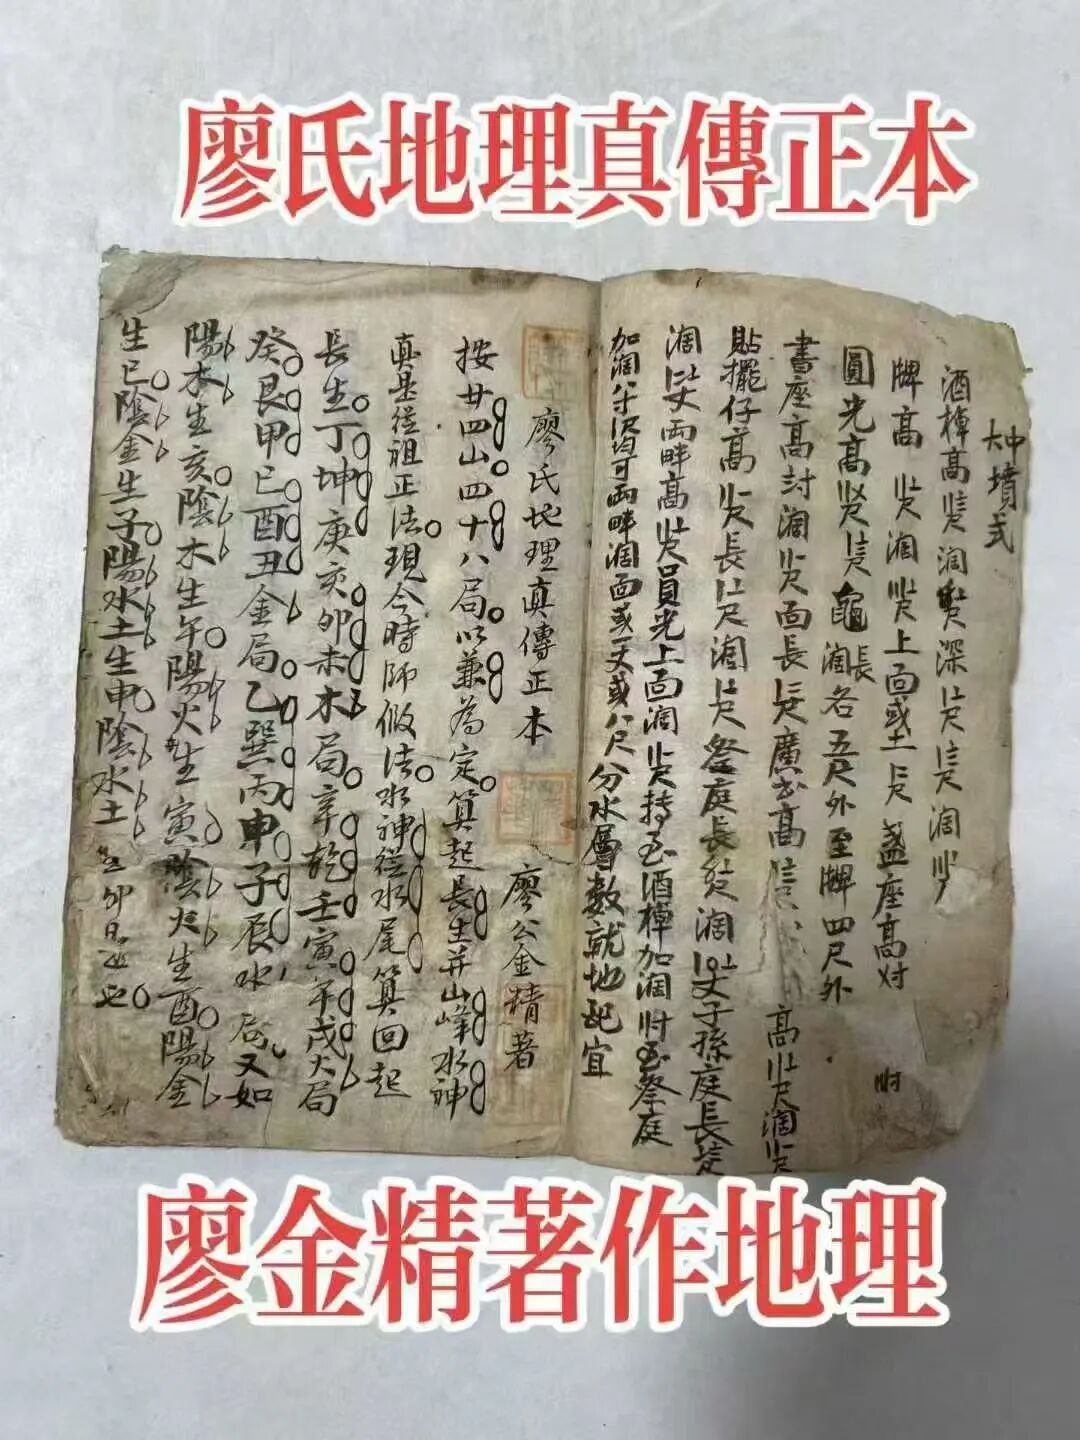 廖氏地理真傳正本
中大墳式
酒棹高 濶 深 尺 濶
牌高 尺濶 尺上面或 尺 盞座高対
圓光高 龜長濶各五尺外至牌四尺外
書座高討濶 尺面長 尺廣 高 高 尺濶 尺
貼擺仔高 尺長 尺濶 尺祭庭長 濶 丈子孫庭長
濶 丈両畔高 尺員光上面濶 尺持至酒棹加濶 至祭庭
加濶 均可両畔濶面或一丈或八尺分水層数就地配宜
廖氏地理真傳正本 廖公金精著
按廿四山四十八局以兼為定算起長生并山峰水神
真是從祖正法現今時師假法水神從水尾算回起
長生丁坤庚亥卯未木局辛乾壬寅午戌火局
癸艮甲巳酉丑金局乙巽丙申子辰水局又如
陽木生亥陰木生午陽火生寅陰火生酉陽金
生巳陰金生子陽水土生申陰水土生卯是也
廖金精著作地理